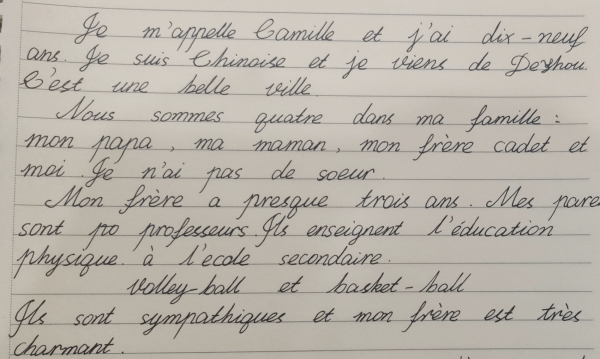 Je m'appelle Camille et j'ai dix-neuf
ans. Je suis Chinoise et je viens de Dezhou.
C'est une belle ville.
Nous sommes quatre dans ma famille :
mon papa, ma maman, mon frère cadet et
moi. Je n'ai pas de soeur.
Mon frère a presque trois ans. Mes pare
sont po professeurs. Ils enseignent l'éducation
physique. à l'école secondaire.
volley-ball et basket-ball
Ils sont sympathiques et mon frère est très
charmant.